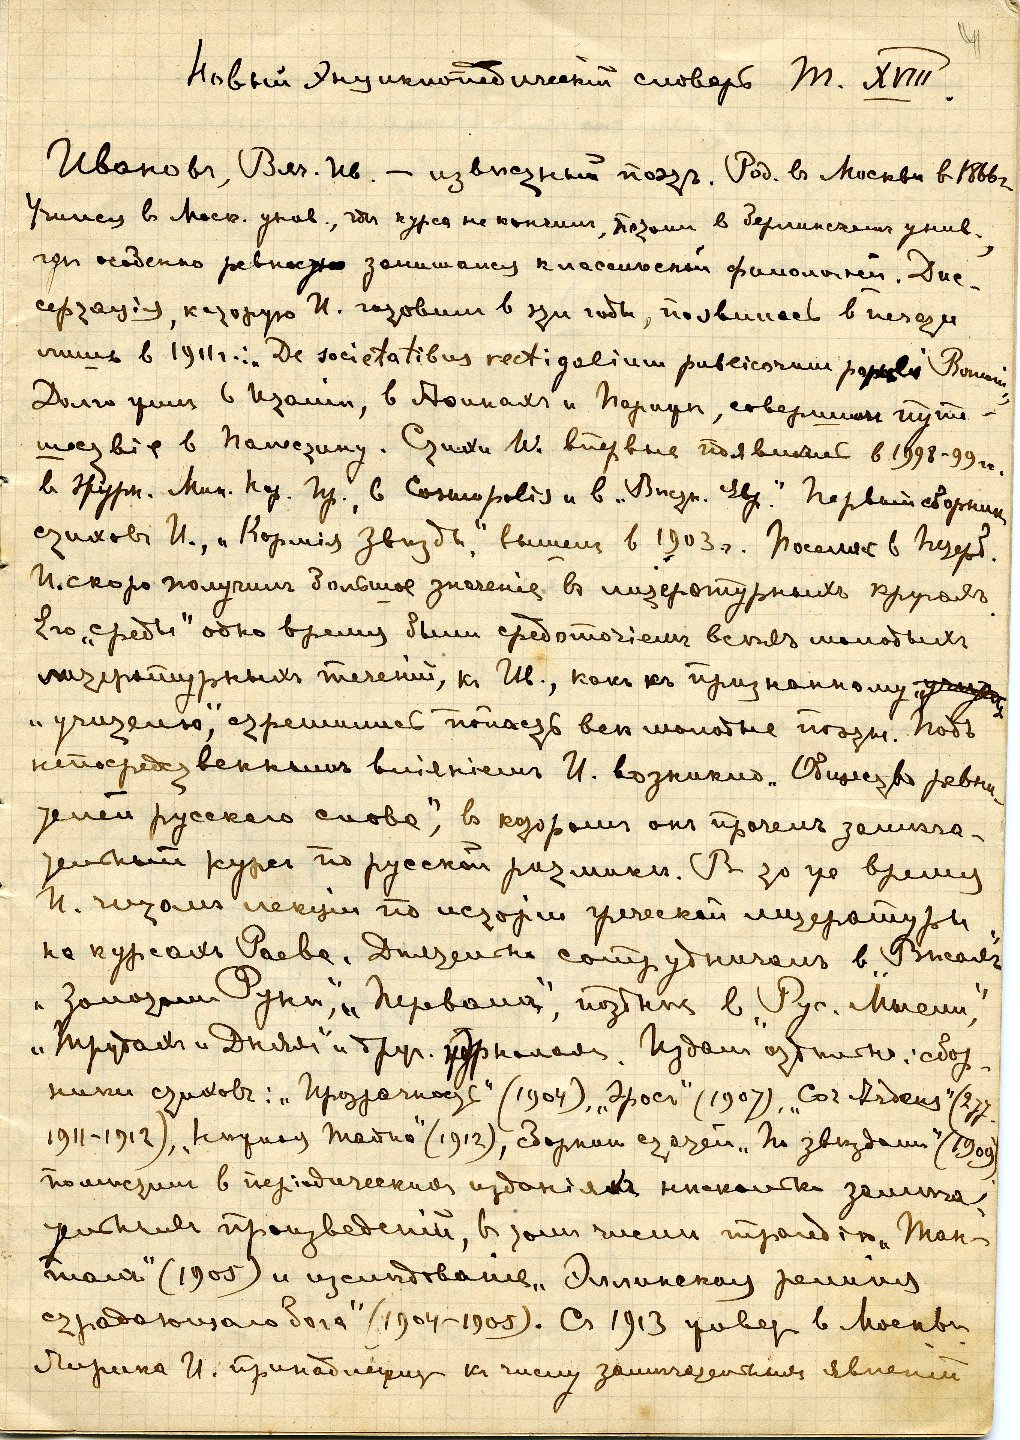 Новый Энциклопедическій словарь Т. XVIII.
Ивановъ, Вяч. Ив. — извѣстный поэтъ. Род. въ Москвѣ в 1866 г.
Учился в Моск. унив., гдѣ курса не кончилъ, позднѣе в берлинскомъ унив.,
гдѣ особенно ревностно занимался классической филологіей. Дис-
сертація, которую И. готовилъ в эти годы, появилась в печати
лишь в 1911 г.: „De societatibus vectigalium publicorum populi Romani"
Долго жилъ в Италіи, в Афинахъ и Парижѣ, совершилъ путе-
шествіе в Палестину. Стихи И. впервые появились в 1998-99 гг.
в Журн. Мин. Нар. Пр., в Cosmopolis и в „Вѣстн. Евр." Первый сборникъ
стиховъ И., „Кормчія Звѣзды", вышелъ в 1903 г. Поселясь в Петерб.
И. скоро получилъ большое значеніе въ литературныхъ кругахъ.
Его „среды" одно время были средоточіемъ всѣхъ молодыхъ
литературныхъ теченій, къ Ив., какъ къ признанному
„учителю", стремились попасть всѣ молодые поэты. Подъ
непосредственнымъ вліяніемъ И. возникло „Общество ревни-
телей русскаго слова", въ которомъ онъ прочелъ замѣча-
тельный курсъ по русской ритмикѣ. В то же время
И. читалъ лекціи по исторіи греческой литературы
на курсахъ Раева. Дѣятельно сотрудничалъ в „Вѣсахъ"
„Золотомъ Рунѣ", „Перевалѣ", позднѣе в „Рус. Мысли",
„Трудахъ и Дняхъ" и друг. журналахъ. Издалъ отдѣльно: сбор-
ники стиховъ: „Прозрачность" (1904), „Эросъ" (1907), „Cor Ardens" (2 тт.
1911-1912), „Нѣжная Тайна" (1912), сборникъ статей „По звѣздамъ" (1909)
помѣстилъ в періодическихъ изданіяхъ нѣсколько замѣча-
тельныхъ произведеній, в томъ числѣ трагедію „Тан-
талъ" (1905) и изслѣдованіе „Эллинская религія
страдающаго бога" (1904-1905). Съ 1913 живетъ в Москвѣ.
Лирика И. принадлежитъ къ числу замѣчательныхъ явленій